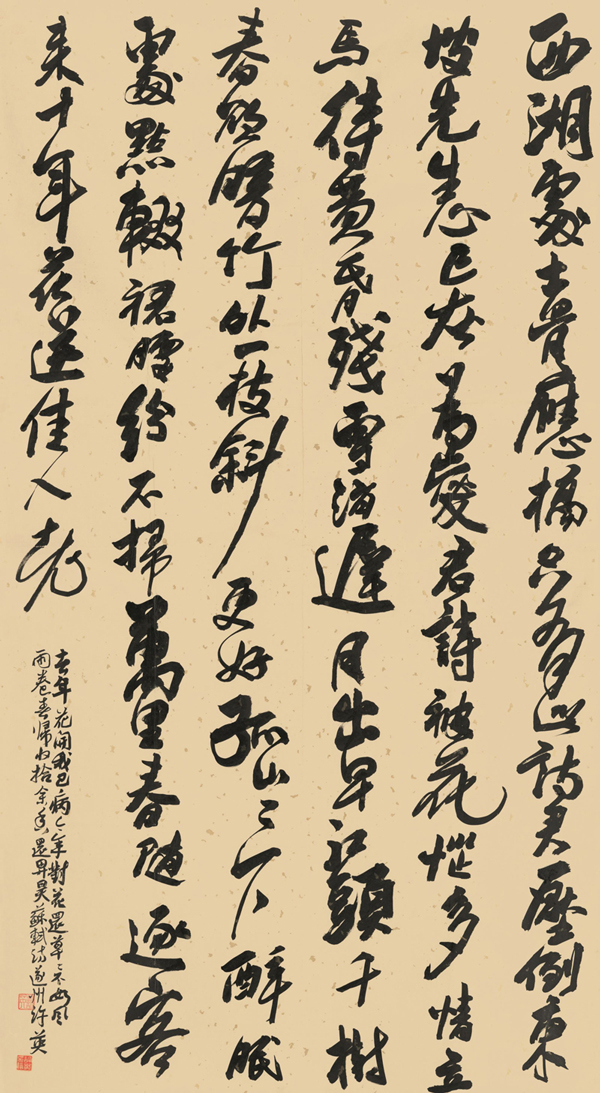 西湖處士骨應槁只有此詩君壓倒東
坡先生心已灰為愛君詩被花惱多情立
馬待黃昏殘雪消遲月出早江頭千樹
春欲暗竹外一枝斜更好孤山々下醉眠
處點輟裙腰紛不掃萬里春隨逐客
來十年花送佳人老
去年花開我已病今年對花還草々不如風
雨卷春歸收拾余香還畀昊蘇軾詩遂州許英